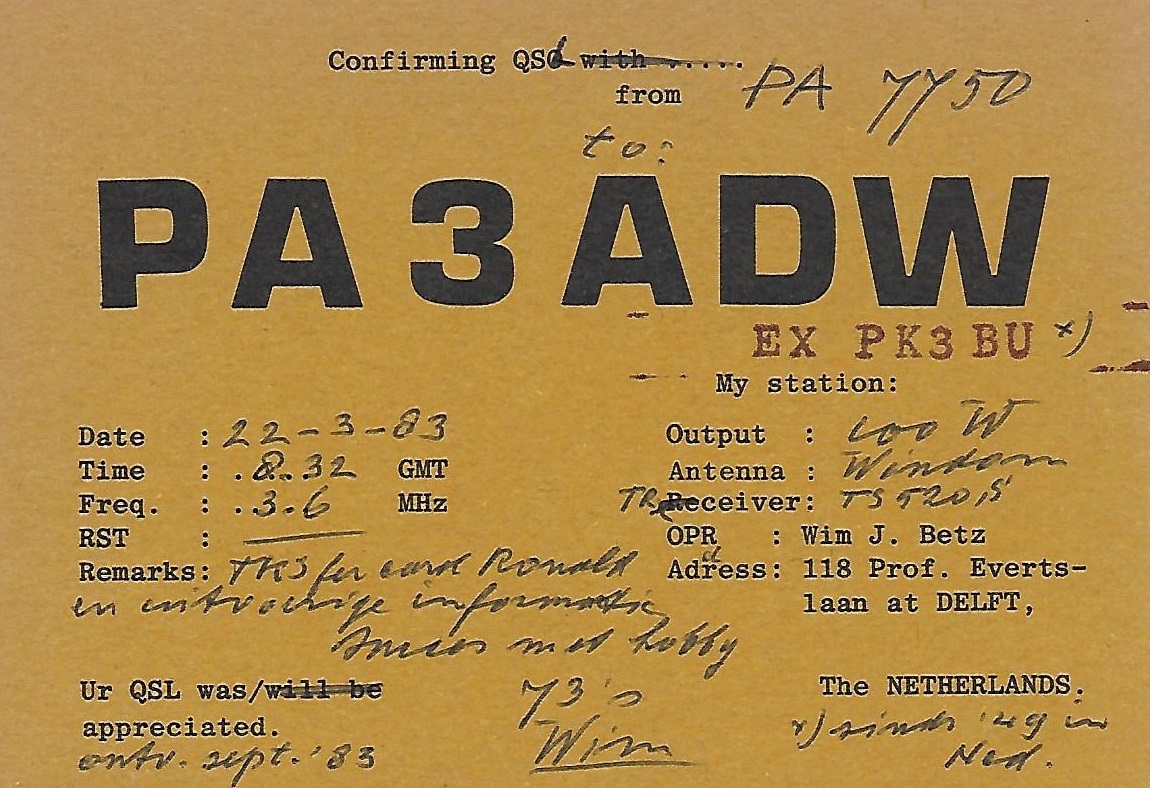 Confirming QSL with .....
from PA 7750
to:
PA3ADW
EX PK3BU x)
My station:
Date : 22-3-83
Time : .8.32 GMT
Freq. : .3.6 MHz
RST : —
Remarks: TKS for card Ronald
en uitvoerige informatie
succes met hobby
Output : 100 W
Antenna : Windom
TReceiver: TS 520 S
OPR : Wim J. Betz
Adress: 118 Prof. Everts-
laan at DELFT,
The NETHERLANDS.
x) sinds '49 in
Ned.
Ur QSL was/will be
appreciated.
ontv. sept. '83
73's
Wim